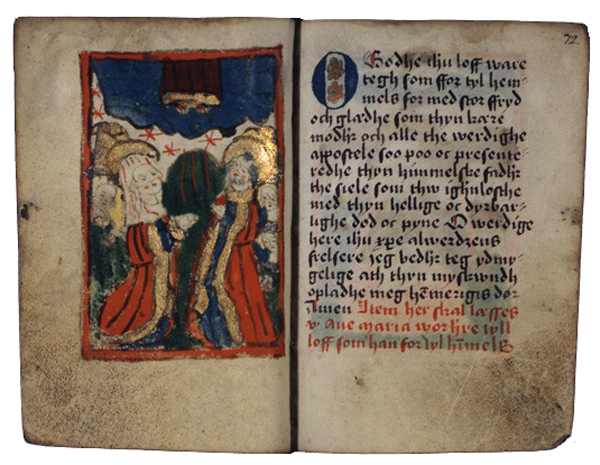 72
O Godhe ihu loff ware
tegh som ffor tyl hem-
mels for med stor ffryd
och gladhe som thyn kære
modhr och alle the werdighe
appostele soo poo oc presente-
redhe thyn himmelske fadhr
the siele som thw ighnlosthe
med thyn hellige oc dyrbar-
lighe død oc pyne O werdige
here ihu xpe alwerdzens
frelsere jeg bedhr teg ydmy-
gelige ath thyn myskwndh
opladhe meg hemerigis dør
Amen Item her skal læsses
v Aue maria wor hre tyll
loff som han for tyl himels